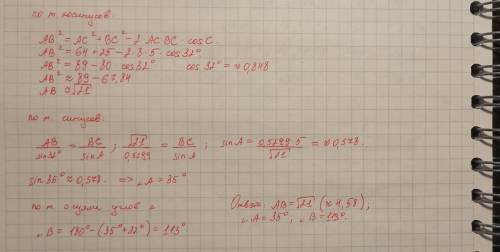 по т. косинусов:
AB² = AC² + BC² - 2 AC·BC · cos C
AB² = 64 + 25 - 2·8·5 · cos 32°
AB² = 89 - 80 · cos 32°   cos 32° = ≈ 0,848
AB² ≈ 89 - 67,84
AB ≈ √21
по т. синусов:
AB/sin32° = BC/sinA ; √21/0,5299 = BC/sinA ; sin A = 0,5299·5/√21 = ≈ 0,578.
sin 35° ≈ 0,578. => ∠A = 35°
по т. о сумме углов Δ   Ответ: AB = √21 (≈ 4,58);
∠B = 180° - (35° + 32°) = 113°.   ∠A = 35°, ∠B = 113°.